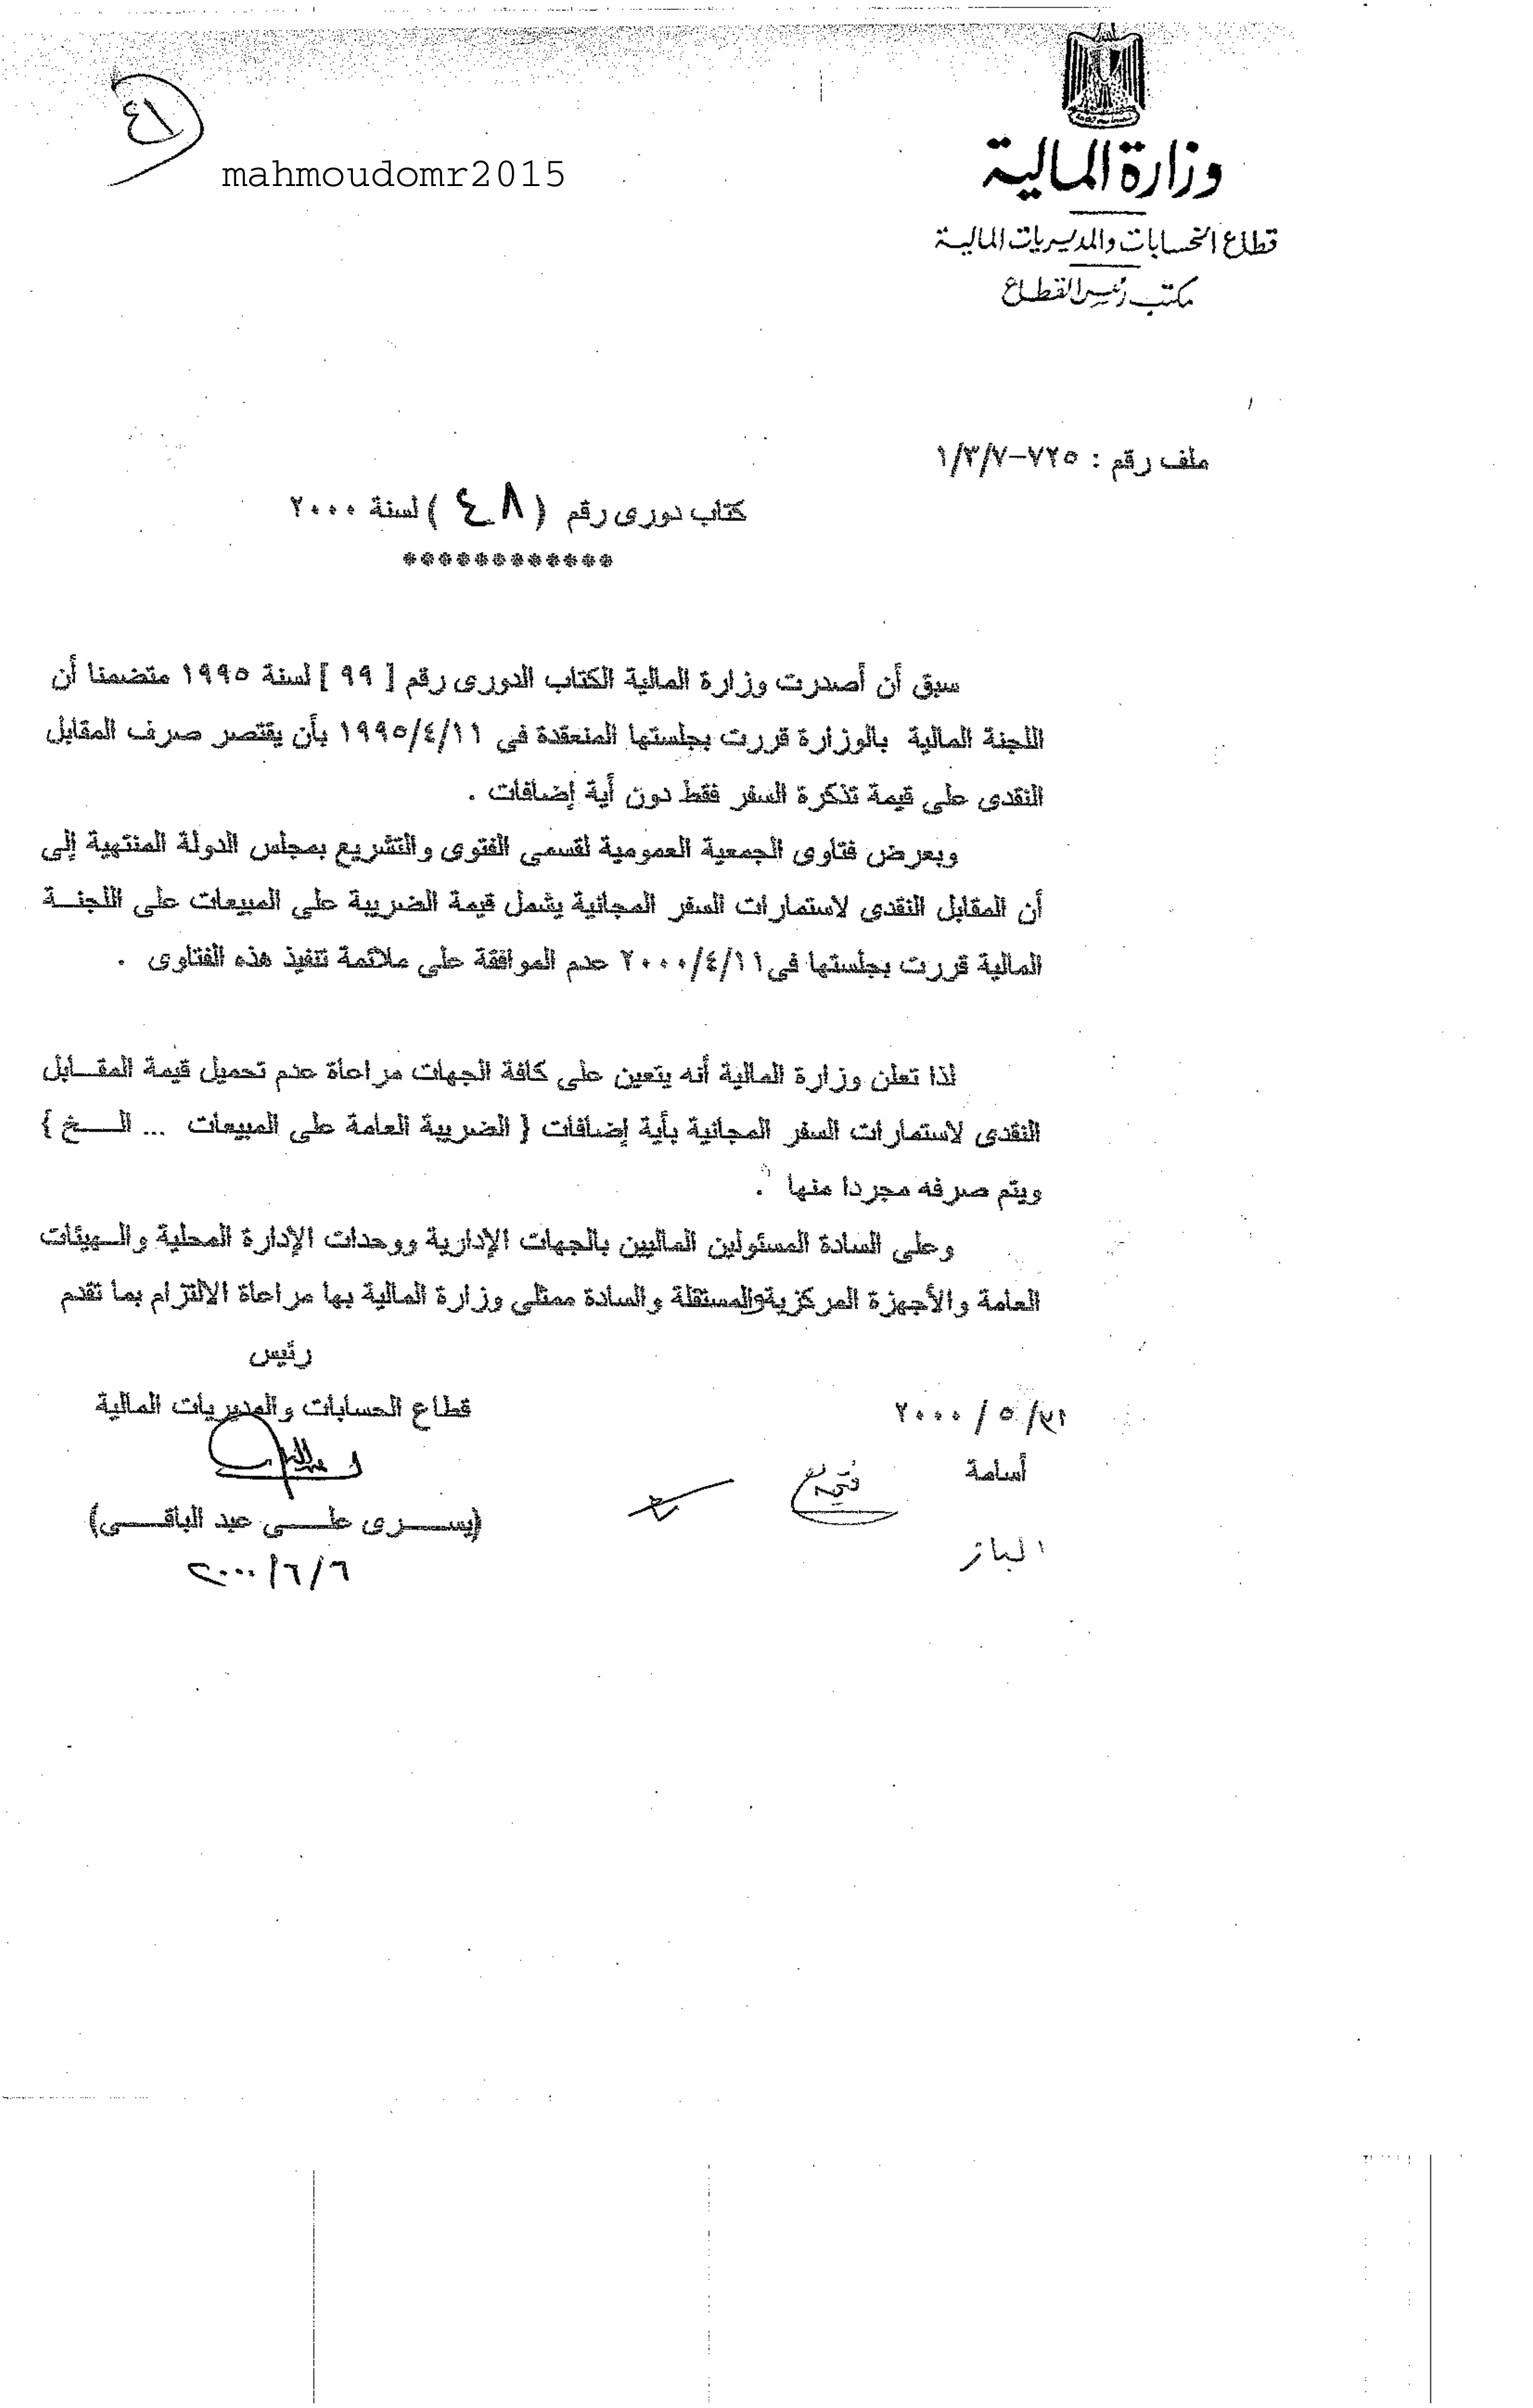 وزارة المالية
قطاع الحسابات والمديريات المالية
مكتب رئيس القطاع
٤١
mahmoudomr2015
ملف رقم : ٧٢٥-١/٣/٧
كتاب دورى رقم ( ٤٨ ) لسنة ٢٠٠٠
************
سبق أن أصدرت وزارة المالية الكتاب الدورى رقم [ ٩٩ ] لسنة ١٩٩٥ متضمنا أن
اللجنة المالية بالوزارة قررت بجلستها المنعقدة فى ١٩٩٥/٤/١١ بأن يقتصر صرف المقابل
النقدى على قيمة تذكرة السفر فقط دون أية إضافات .
وبعرض فتاوى الجمعية العمومية لقسمى الفتوى والتشريع بمجلس الدولة المنتهية إلى
أن المقابل النقدى لاستمارات السفر المجانية يشمل قيمة الضريبة على المبيعات على اللجنــة
المالية قررت بجلستها فى ٢٠٠٠/٤/١١ عدم الموافقة على ملائمة تنفيذ هذه الفتاوى .
لذا تعلن وزارة المالية أنه يتعين على كافة الجهات مراعاة عدم تحميل قيمة المقــابل
النقدى لاستمارات السفر المجانية بأية إضافات { الضريبة العامة على المبيعات ... الــــخ }
ويتم صرفه مجردا منها .
وعلى السادة المسئولين الماليين بالجهات الإدارية ووحدات الإدارة المحلية والــهيئات
العامة والأجهزة المركزية والمستقلة والسادة ممثلى وزارة المالية بها مراعاة الالتزام بما تقدم
رئيس
قطاع الحسابات والمديريات المالية
/ ٥ / ٢٠٠٠
أسامة
(يســـرى علـــى عبد الباقـــى)
الباز
٢٠٠٠/٦/٦